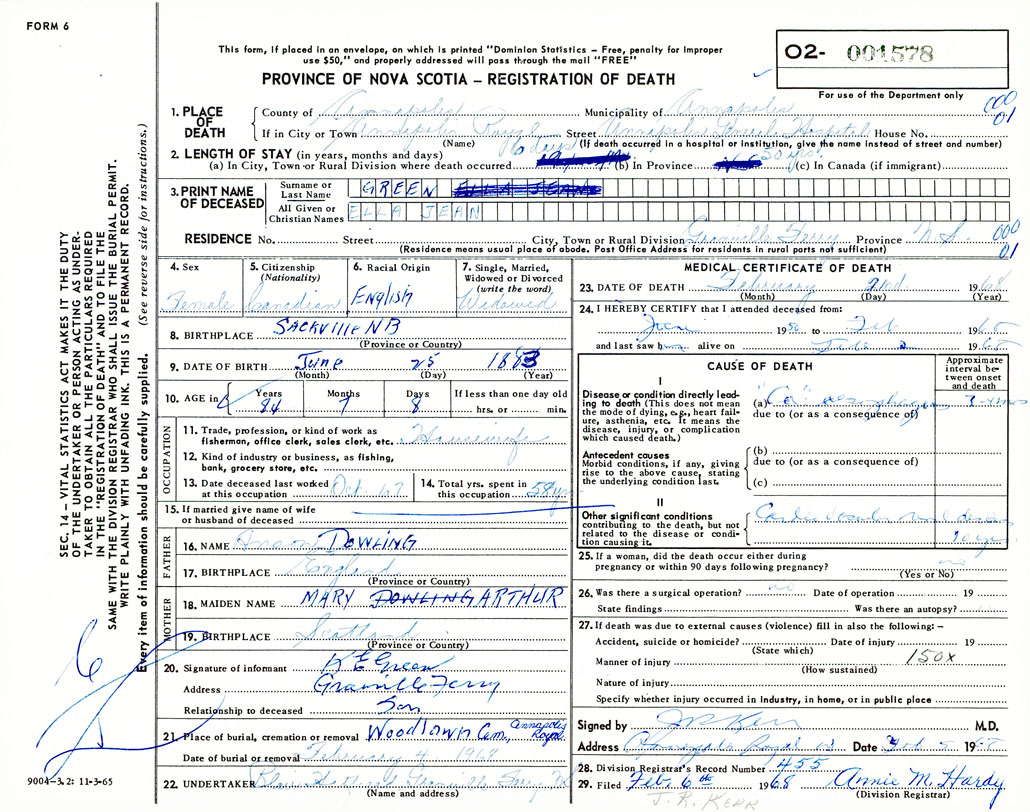 FORM 6
This form, if placed in an envelope, on which is printed "Dominion Statistics – Free, penalty for improper
use $50," and properly addressed will pass through the mail "FREE"
O2- 001578
PROVINCE OF NOVA SCOTIA – REGISTRATION OF DEATH
For use of the Department only
000
01
1. PLACE OF DEATH
County of Annapolis Municipality of Annapolis
If in City or Town Annapolis Royal Street Annapolis General Hospital House No.
(Name) (If death occurred in a hospital or institution, give the name instead of street and number)
2. LENGTH OF STAY (in years, months and days) 6 days 50 yrs.
(a) In City, Town or Rural Division where death occurred (b) In Province (c) In Canada (if immigrant)
3. PRINT NAME OF DECEASED
Surname or Last Name GREEN ELLA JEAN
All Given or Christian Names ELLA JEAN
RESIDENCE No. Street City, Town or Rural Division Granville Ferry Province N.S. 000
01
(Residence means usual place of abode. Post Office Address for residents in rural parts not sufficient)
4. Sex Female
5. Citizenship (Nationality) Canadian
6. Racial Origin English
7. Single, Married, Widowed or Divorced (write the word) Widowed
8. BIRTHPLACE SACKVILLE NB
(Province or Country)
9. DATE OF BIRTH June 25 1883
(Month) (Day) (Year)
10. AGE in Years 84 Months 7 Days 8 If less than one day old hrs. or min.
OCCUPATION
11. Trade, profession, or kind of work as fisherman, office clerk, sales clerk, etc. Housewife
12. Kind of industry or business, as fishing, bank, grocery store, etc.
13. Date deceased last worked at this occupation Oct 67
14. Total yrs. spent in this occupation 58 yrs
15. If married give name of wife or husband of deceased
FATHER
16. NAME DOWLING
17. BIRTHPLACE England
(Province or Country)
MOTHER
18. MAIDEN NAME MARY DOWLING ARTHUR
19. BIRTHPLACE Scotland
(Province or Country)
20. Signature of informant K E Green
Address Granville Ferry
Relationship to deceased Son
21. Place of burial, cremation or removal Woodlawn Cem., Annapolis Royal
Date of burial or removal February 4 1968
22. UNDERTAKER Granville Ferry, N.S.
(Name and address)
MEDICAL CERTIFICATE OF DEATH
23. DATE OF DEATH February 2nd 1968
(Month) (Day) (Year)
24. I HEREBY CERTIFY that I attended deceased from:
19 to Feb 1968
and last saw alive on Feb 2 1968
CAUSE OF DEATH
Approximate interval between onset and death
I
Disease or condition directly leading to death (This does not mean the mode of dying, e.g., heart failure, asthenia, etc. It means the disease, injury, or complication which caused death.)
(a) "Ca" oesophagus
due to (or as a consequence of)
Antecedent causes
Morbid conditions, if any, giving rise to the above cause, stating the underlying condition last.
(b)
due to (or as a consequence of)
(c)
II
Other significant conditions
contributing to the death, but not related to the disease or condition causing it.
25. If a woman, did the death occur either during
pregnancy or within 90 days following pregnancy? no
(Yes or No)
26. Was there a surgical operation? no Date of operation 19
State findings Was there an autopsy?
27. If death was due to external causes (violence) fill in also the following: –
Accident, suicide or homicide? Date of injury 19
(State which)
Manner of injury 150X
(How sustained)
Nature of injury
Specify whether injury occurred in Industry, in home, or in public place
Signed by J R Kerr M.D.
Address Annapolis Royal NS Date Feb 5 1968
28. Division Registrar's Record Number 455
29. Filed Feb. 6th 1968 Annie M. Hardy
(Division Registrar)
J. R. KERR
9004–3.2: 11-3-65
SEC. 14 – VITAL STATISTICS ACT MAKES IT THE DUTY
OF THE UNDERTAKER OR PERSON ACTING AS UNDER-
TAKER TO OBTAIN ALL THE PARTICULARS REQUIRED
IN THE "REGISTRATION OF DEATH" AND TO FILE THE
SAME WITH THE DIVISION REGISTRAR WHO SHALL ISSUE THE BURIAL PERMIT.
WRITE PLAINLY WITH UNFADING INK. THIS IS A PERMANENT RECORD.
Every item of information should be carefully supplied. (See reverse side for instructions.)